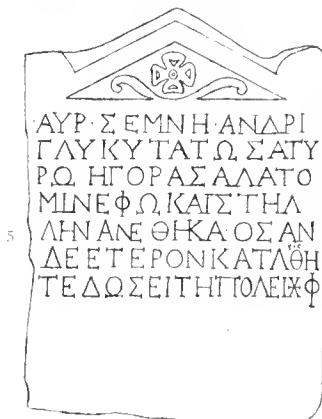 ΑΥΡ·ΣΕΜΝΗ·ΑΝΔΡΙ
ΓΛΥΚΥΤΑΤΩΣΑΤΥ
ΡΩΗΓΟΡΑΣΑΛΑΤΟ
ΜΙΝΕΦΩΚΑΙΣΤΗΛ
5 ΛΗΝΑΝΕΘΗΚΑ·ΟΣΑΝ
ΔΕΕΤΕΡΟΝΚΑΤΑΘΗ
ΤΕΔΩΣΕΙΤΗΠΟΛΕΙ